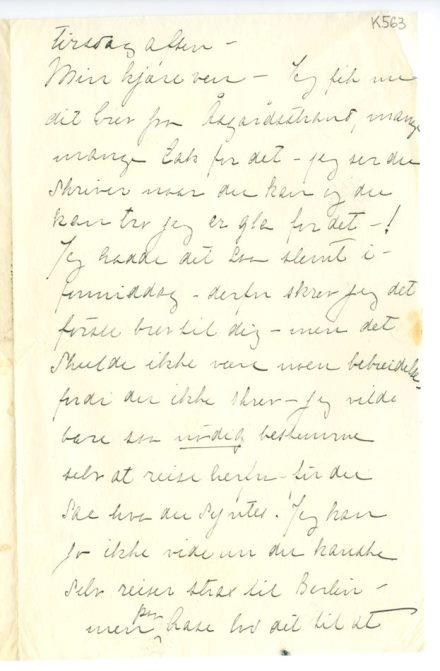 K563
tirsdag aften –
Min kjäre ven – Jeg fik nu
dit brev fra Åsgårdsstrand, mange
mange tak for det – jeg ser du
skriver naar du kan og du
kan tro jeg er gla for det –!
Jeg hadde det saa slemt i
formiddag – derfor skrev jeg det
første brev til dig – men det
skulde ikke være noen bebreidelse,
fordi du ikke skrev – jeg vilde
bare saa nödig bestemme
selv at reise herfra för du
sae hva du syntes. Jeg kan
jo ikke vide om du kanske
selv reiser strax til Berlin –
men hva det til at